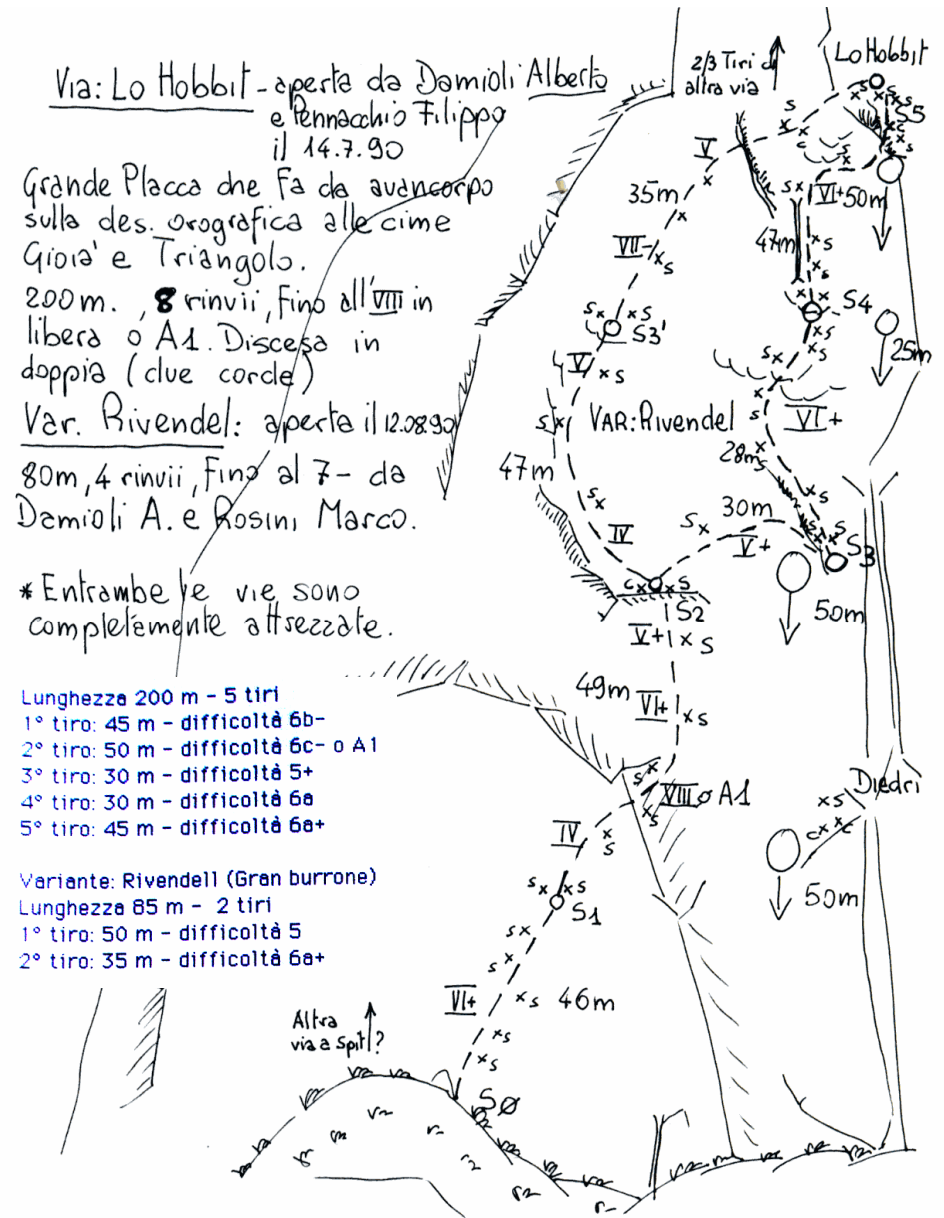 Via: Lo Hobbit - aperta da Damioli Alberto
e Pennacchio Filippo
il 14.7.90
Grande Placca che fa da avancorpo
sulla des. orografica alle cime
Gioia' e Triangolo.
200m., 8 rinvii, fino all'VIII in
libera o A1. Discesa in
doppia (due corde)
Var. Rivendel: aperta il 12.08.90
80m, 4 rinvii, fino al 7- da
Damioli A. e Rosini Marco.
* Entrambe le vie sono
completamente attrezzate.
Lunghezza 200 m - 5 tiri
1° tiro: 45 m - difficoltà 6b-
2° tiro: 50 m - difficoltà 6c- o A1
3° tiro: 30 m - difficoltà 5+
4° tiro: 30 m - difficoltà 6a
5° tiro: 45 m - difficoltà 6a+
Variante: Rivendell (Gran burrone)
Lunghezza 85 m - 2 tiri
1° tiro: 50 m - difficoltà 5
2° tiro: 35 m - difficoltà 6a+
Lo Hobbit
2/3 Tiri di
altra via
S5
V
35m
VI+ 50m
47m
VII-
S4
S3'
25m
V
VAR: Rivendel
VI+
28m
47m
30m
IV
V+
S3
50m
S2
V+
49m
VI+
Diedri
VIII o A1
IV
50m
S1
VI+
46m
Altra
via a spit?
SØ